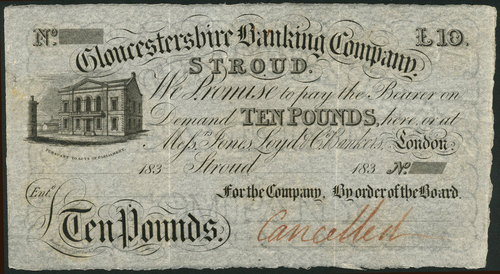 No. £10.
Gloucestershire Banking Company.
STROUD.
We Promise to pay the Bearer on
Demand TEN POUNDS, here, or at
Messrs Jones, Loyd & Co. Bankers, London
183 Stroud 183 No.
PURSUANT TO ACT OF PARLIAMENT.
For the Company, By order of the Board.
Entd.
Ten Pounds.
Cancelled